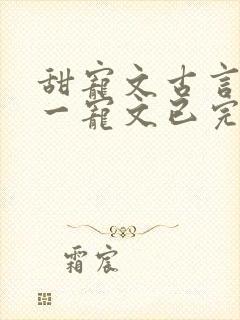 甜寵文古言
一寵文已完
霜宸